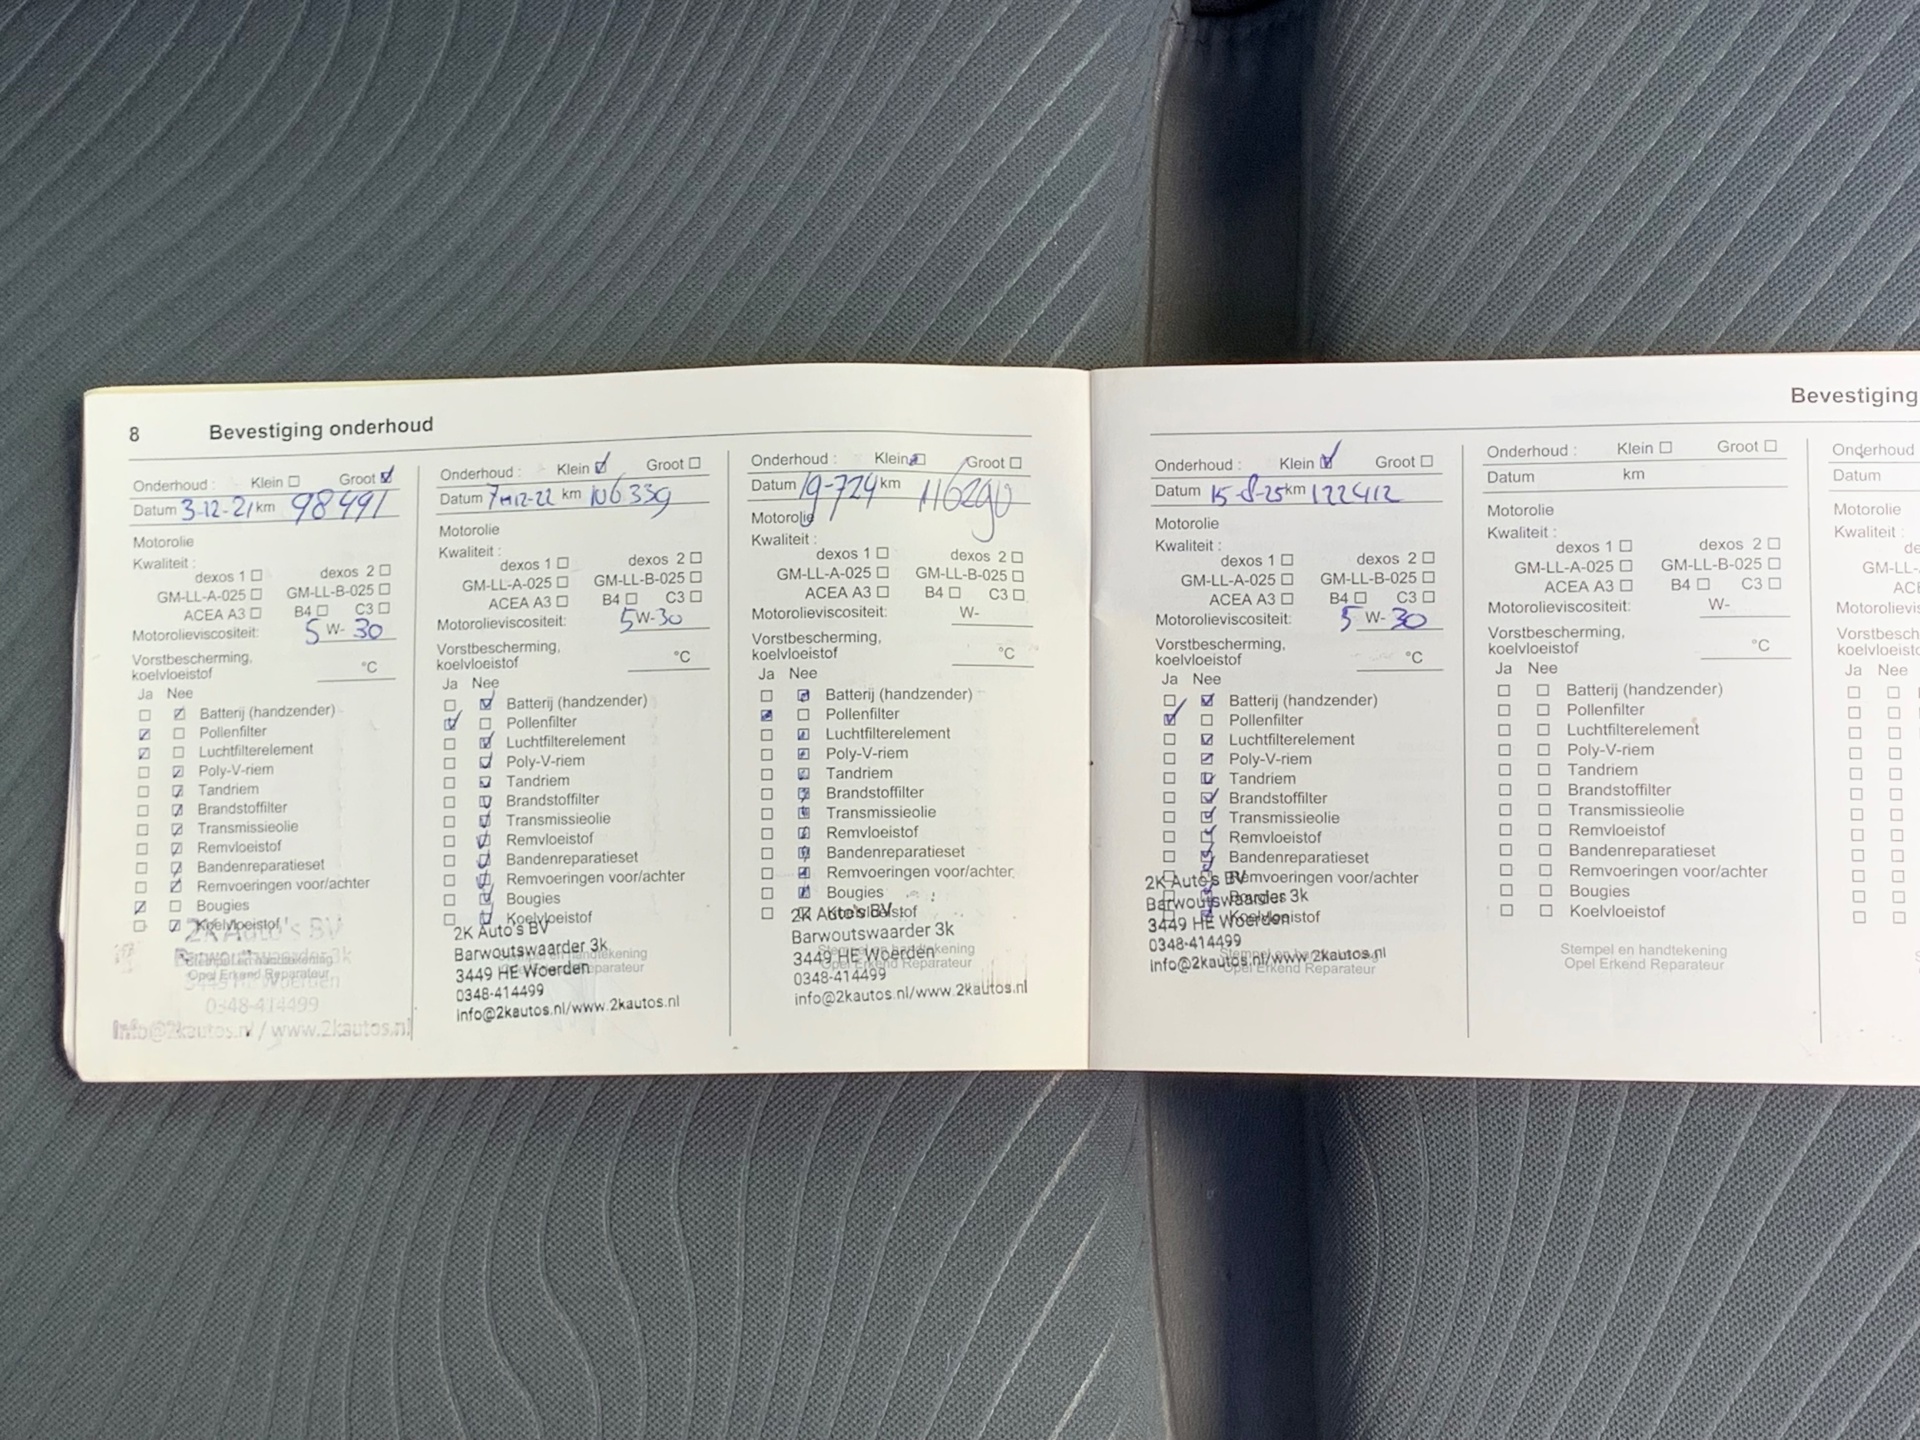 8 Bevestiging onderhoud
Onderhoud : Klein Groot
Datum 3-12-21 km 98491
Motorolie
Kwaliteit :
dexos 1 dexos 2
GM-LL-A-025 GM-LL-B-025
ACEA A3 B4 C3
Motorolieviscositeit: 5 W- 30
Vorstbescherming,
koelvloeistof °C
Ja Nee
Batterij (handzender)
Pollenfilter
Luchtfilterelement
Poly-V-riem
Tandriem
Brandstoffilter
Transmissieolie
Remvloeistof
Bandenreparatieset
Remvoeringen voor/achter
Bougies
Koelvloeistof
2K Auto's BV
Barwoutswaarder 3k
Stempel en handtekening
Opel Erkend Reparateur
3449 HE Woerden
0348-414499
info@2kautos.nl / www.2kautos.nl
Onderhoud : Klein Groot
Datum 7-12-22 km 106339
Motorolie
Kwaliteit :
dexos 1 dexos 2
GM-LL-A-025 GM-LL-B-025
ACEA A3 B4 C3
Motorolieviscositeit: 5 W- 30
Vorstbescherming,
koelvloeistof °C
Ja Nee
Batterij (handzender)
Pollenfilter
Luchtfilterelement
Poly-V-riem
Tandriem
Brandstoffilter
Transmissieolie
Remvloeistof
Bandenreparatieset
Remvoeringen voor/achter
Bougies
Koelvloeistof
2K Auto's BV
Barwoutswaarder 3k
Stempel en handtekening
3449 HE Woerden
Opel Erkend Reparateur
0348-414499
info@2kautos.nl/www.2kautos.nl
Onderhoud : Klein Groot
Datum 19-724 km 116290
Motorolie
Kwaliteit :
dexos 1 dexos 2
GM-LL-A-025 GM-LL-B-025
ACEA A3 B4 C3
Motorolieviscositeit: W-
Vorstbescherming,
koelvloeistof °C
Ja Nee
Batterij (handzender)
Pollenfilter
Luchtfilterelement
Poly-V-riem
Tandriem
Brandstoffilter
Transmissieolie
Remvloeistof
Bandenreparatieset
Remvoeringen voor/achter
Bougies
Koelvloeistof
2K Auto's BV
Barwoutswaarder 3k
Stempel en handtekening
3449 HE Woerden
Opel Erkend Reparateur
0348-414499
info@2kautos.nl/www.2kautos.nl
Bevestiging
Onderhoud : Klein Groot
Datum 15-8-25 km 122412
Motorolie
Kwaliteit :
dexos 1 dexos 2
GM-LL-A-025 GM-LL-B-025
ACEA A3 B4 C3
Motorolieviscositeit: 5 W- 30
Vorstbescherming,
koelvloeistof °C
Ja Nee
Batterij (handzender)
Pollenfilter
Luchtfilterelement
Poly-V-riem
Tandriem
Brandstoffilter
Transmissieolie
Remvloeistof
Bandenreparatieset
Remvoeringen voor/achter
2K Auto's BV
Bougies
Barwoutswaarder 3k
Koelvloeistof
3449 HE Woerden
0348-414499
Stempel en handtekening
info@2kautos.nl/www.2kautos.nl
Opel Erkend Reparateur
Onderhoud : Klein Groot
Datum km
Motorolie
Kwaliteit :
dexos 1 dexos 2
GM-LL-A-025 GM-LL-B-025
ACEA A3 B4 C3
Motorolieviscositeit: W-
Vorstbescherming,
koelvloeistof °C
Ja Nee
Batterij (handzender)
Pollenfilter
Luchtfilterelement
Poly-V-riem
Tandriem
Brandstoffilter
Transmissieolie
Remvloeistof
Bandenreparatieset
Remvoeringen voor/achter
Bougies
Koelvloeistof
Stempel en handtekening
Opel Erkend Reparateur
Onderhoud :
Datum
Motorolie
Kwaliteit :
GM-LL-
Ja Nee